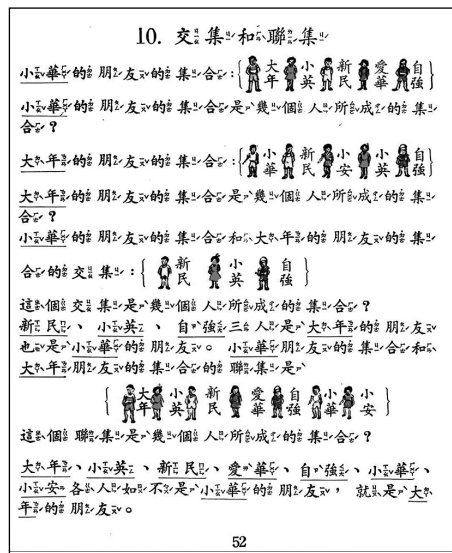 10. 交集和聯集
小華的朋友的集合:{大年 小英 新民 愛華 自強}
小華的朋友的集合是幾個人所成的集
合?
大年的朋友的集合:{小華 新民 小安 小英 自強}
大年的朋友的集合是幾個人所成的集
合?
小華的朋友的集合和大年的朋友的集
合的交集:{新民 小英 自強}
這個交集是幾個人所成的集合?
新民、小英、自強三人是大年的朋友
也是小華的朋友。小華朋友的集合和
大年朋友的集合的聯集是
{大年 小英 新民 愛華 自強 小華 小安}
這個聯集是幾個人所成的集合?
大年、小英、新民、愛華、自強、小華、
小安各人如不是小華的朋友,就是大
年的朋友。
52